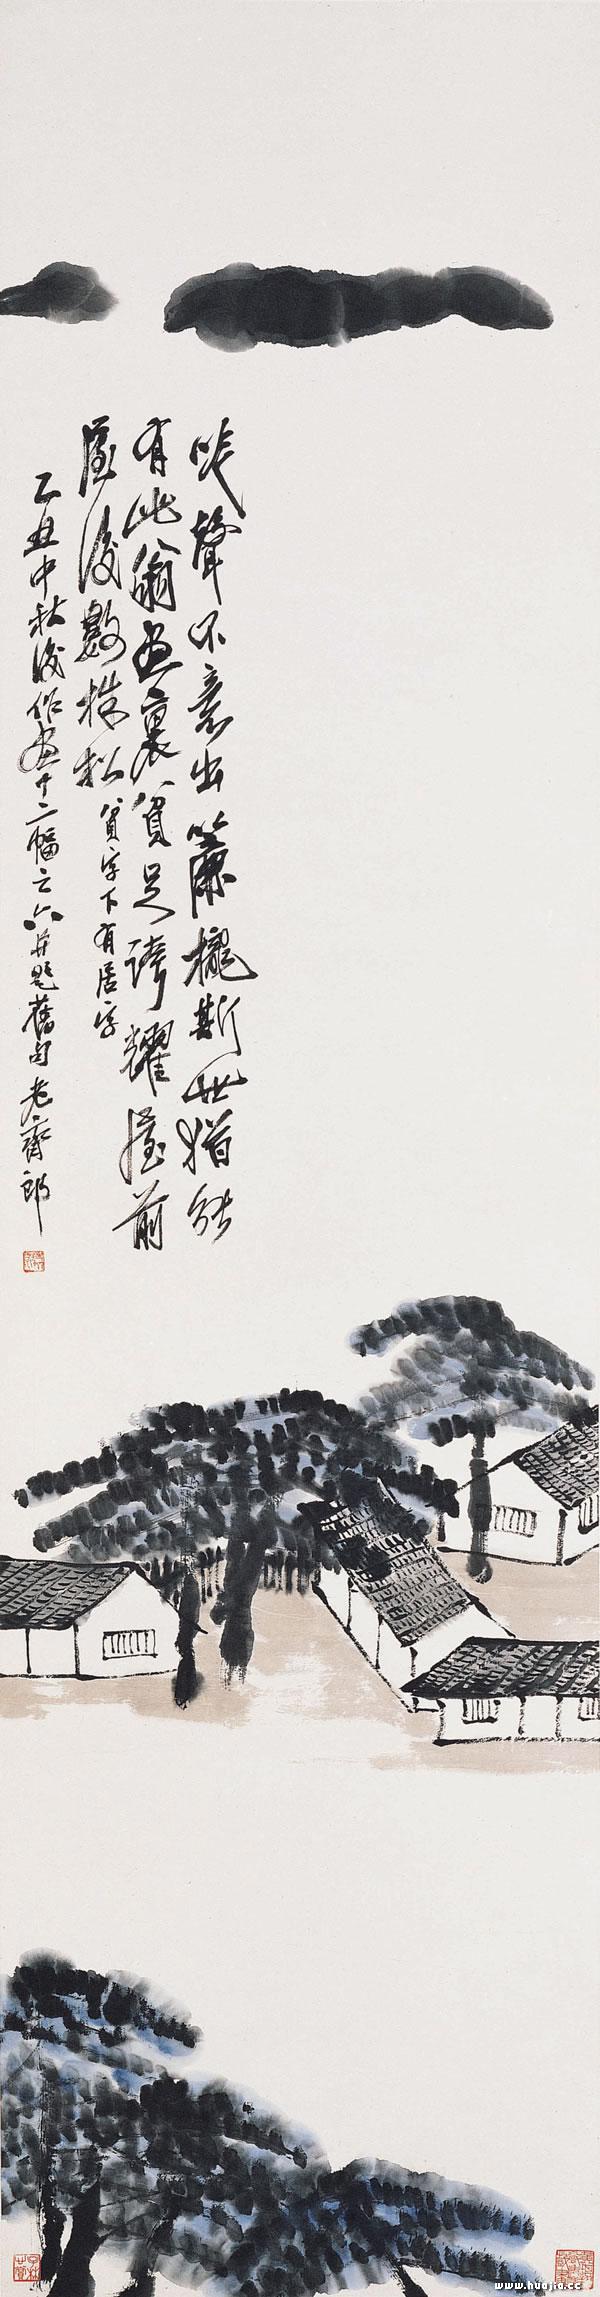 咲聲不意出簾櫳斯世猶能
有此翁畫裏貧足誇耀屋前
屋後數株松
貧字下有居字
乙丑中秋後作畫十二幅之六并題舊句老齊郎
www.huajia.cc